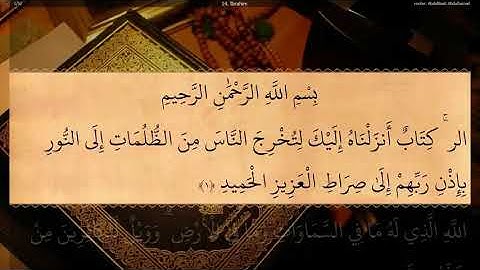 14. Ibrahim
بِسْمِ اللَّهِ الرَّحْمَٰنِ الرَّحِيمِ
الر ۚ كِتَابٌ أَنزَلْنَاهُ إِلَيْكَ لِتُخْرِجَ النَّاسَ مِنَ الظُّلُمَاتِ إِلَى النُّورِ
بِإِذْنِ رَبِّهِمْ إِلَىٰ صِرَاطِ الْعَزِيزِ الْحَمِيدِ ﴿١﴾
اللَّهِ الَّذِي لَهُ مَا فِي السَّمَاوَاتِ وَمَا فِي الْأَرْضِ ۗ وَوَيْلٌ لِّلْكَافِرِينَ مِنْ